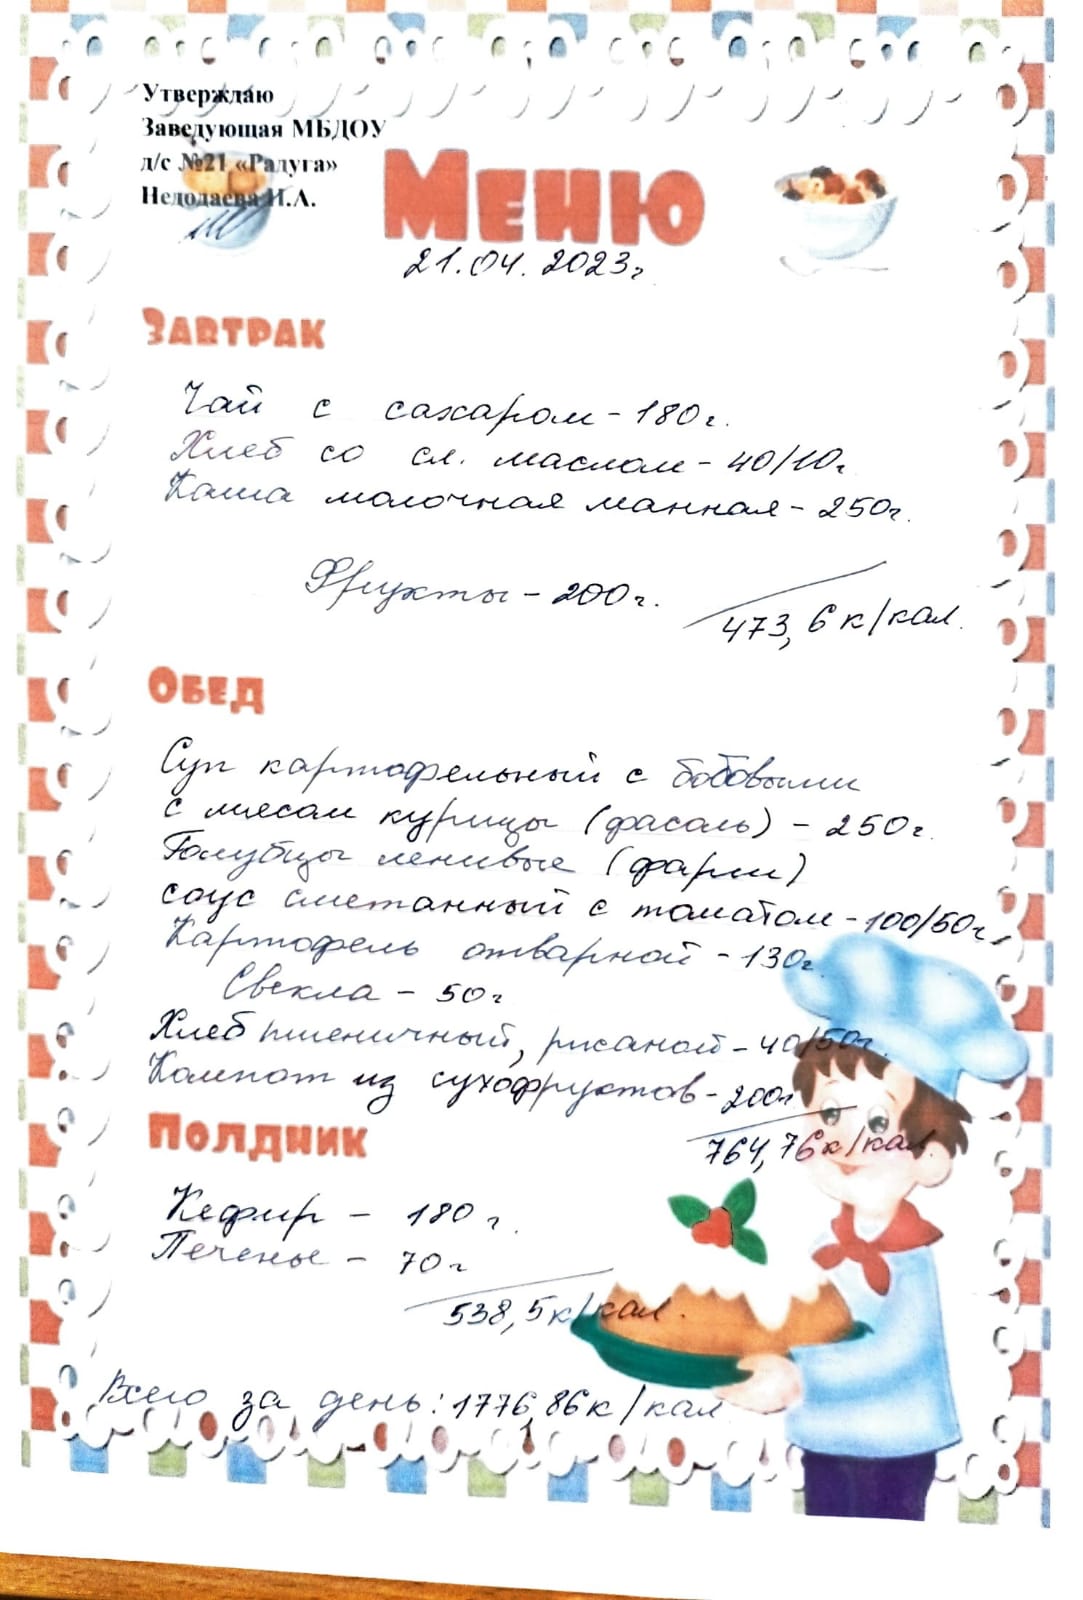 Утверждаю
Заведующая МБДОУ
д/с №21 «Радуга»
Недодаева И.А.
Меню
21.04.2023г
Завтрак
Чай с сахаром - 180г.
Хлеб со сл. маслом - 40/10г
Каша молочная манная - 250г.
Фрукты - 200г.
473,6 к/кал.
Обед
Суп картофельный с бобовыми
с мясом курицы (фасоль) - 250г.
Голубцы ленивые (фарш)
соус сметанный с томатом - 100/50г,
Картофель отварной - 130г
Свекла - 50г
Хлеб пшеничный, ржаной - 40/50г.
Компот из сухофруктов - 200г
764,76к/кал.
Полдник
Кефир - 180 г.
Печенье - 70г
538,5к/кал.
Всего за день: 1776,86к/кал